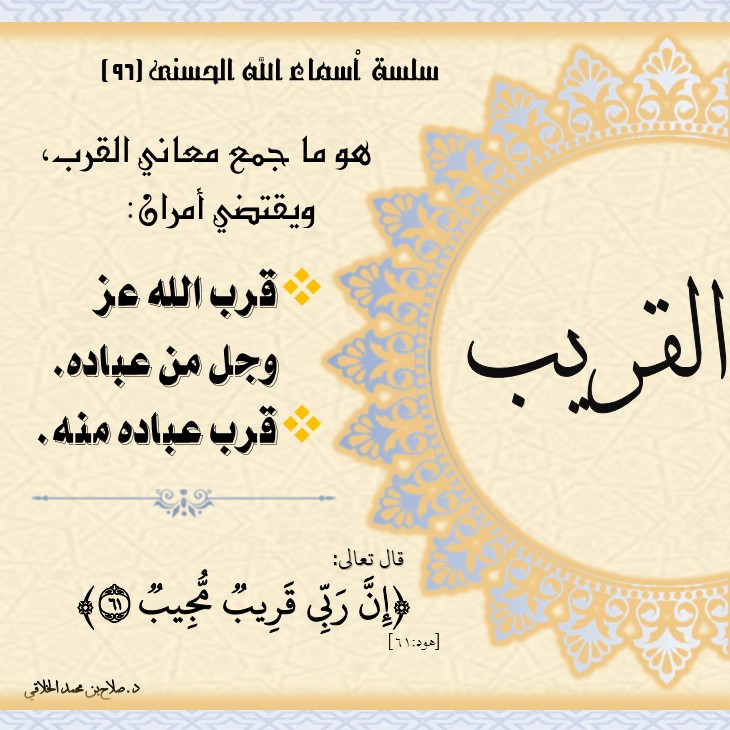 سلسة أسماء الله الحسنى (٩٦)
القريب
هو ما جمع معاني القرب،
ويقتضي أمران:
قرب الله عز
وجل من عباده.
قرب عباده منه.
قال تعالى:
﴿إِنَّ رَبِّي قَرِيبٌ مُّجِيبٌ ٦١﴾
[هود:٦١]
د.صلاح بن محمد الخلاقي